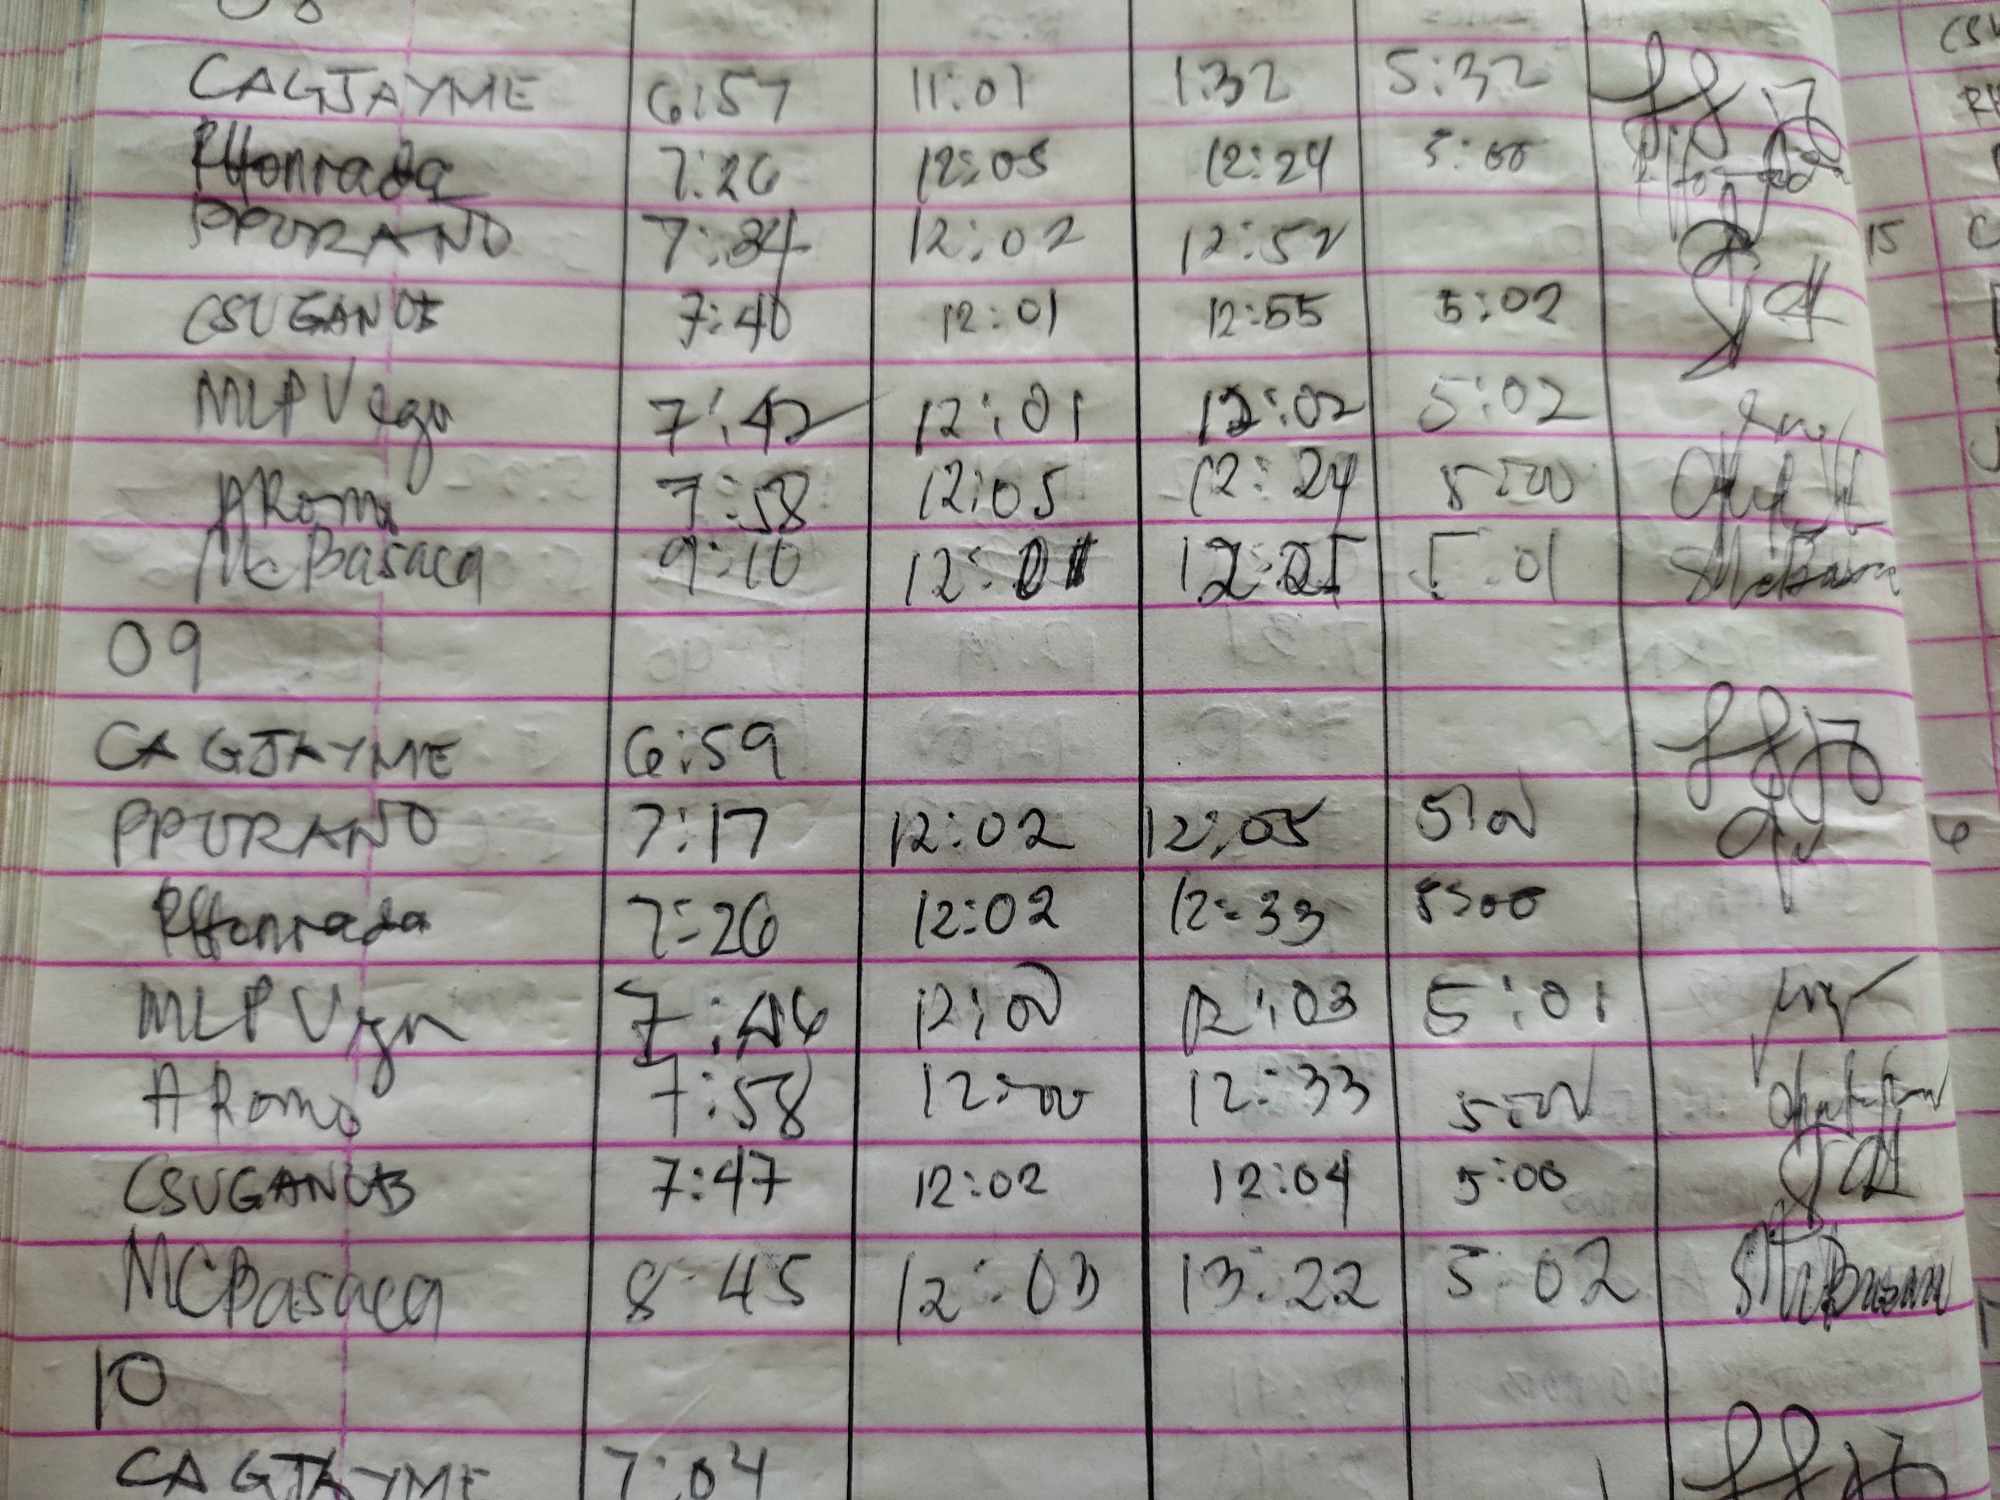 08
CAGJAYME 6:57 11:01 1:32 5:32
RHonrada 7:26 12:05 12:24 5:00
PPURANO 7:34 12:02 12:52
CSUGANOB 7:40 12:01 12:55 5:02
MLPVega 7:42 12:01 12:02 5:02
ARomo 7:58 12:05 12:24 5:00
MCBasaca 9:10 12:01 12:05 5:01
09
CAGJAYME 6:59
PPURANO 7:17 12:02 12:05
RHonrada 7:26 12:02 12:33 5:00
MLPVega 7:46 12:03 5:01
ARomo 7:58 12:00 12:33 5:00
CSUGANOB 7:47 12:02 12:04 5:00
MCBasaca 8:45 12:03 13:22 5:02
10
CAGJAYME 7:04
15